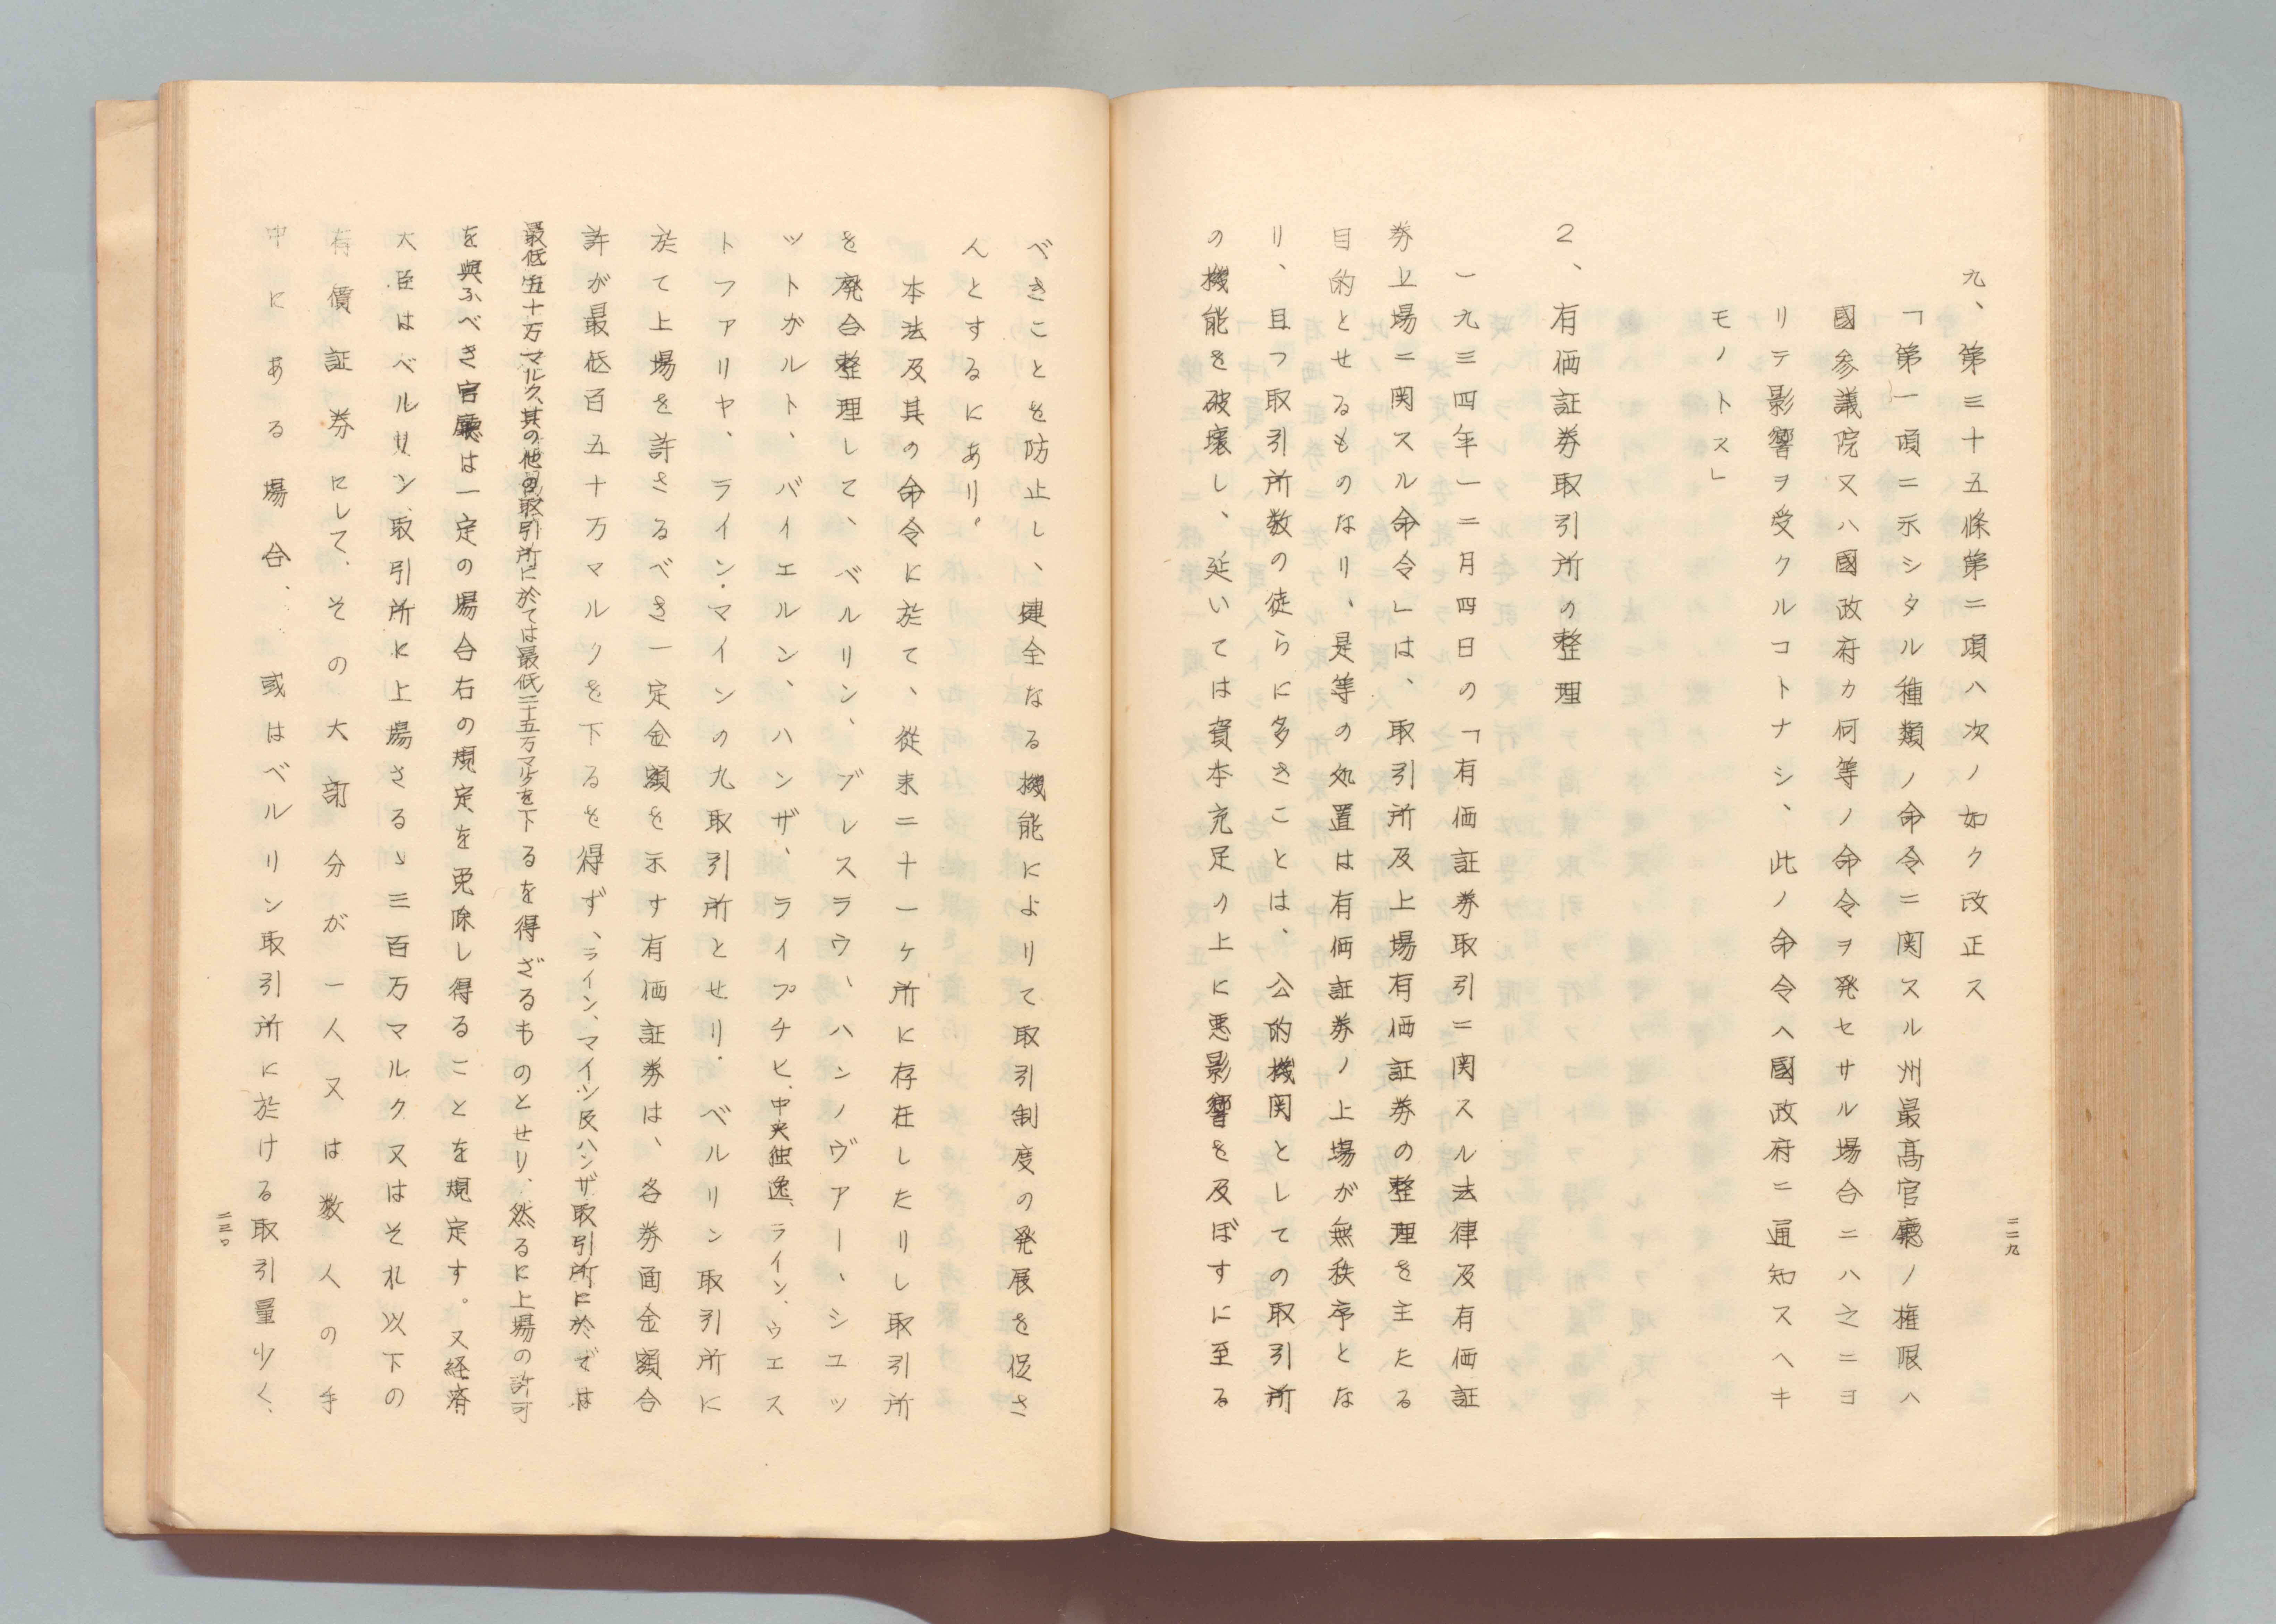 九、第三十五條第二項ハ次ノ如ク改正ス
「第一項ニ示シタル種類ノ命令ニ関スル州最高官廳ノ権限ハ
國参議院又ハ國政府カ何等ノ命令ヲ発セサル場合ニハ之ニヨ
リテ影響ヲ受クルコトナシ、此ノ命令ハ國政府ニ通知スヘキ
モノトス」
2、有価証券取引所の整理
一九三四年一二月四日の「有価証券取引ニ関スル法律及有価証
券上場ニ関スル命令」は、取引所及上場有価証券の整理を主たる
目的とせるものなり、是等の処置は有価証券ノ上場が無秩序とな
り、且つ取引所数の徒らに多きことは、公的機関としての取引所
の機能を破壊し、延いては資本充足の上に悪影響を及ぼすに至る
二二九
べきことを防止し、健全なる機能によりて取引制度の発展を促さ
んとするにあり。
本法及其の命令に於て、従来二十一ヶ所に存在したりし取引所
を廃合整理して、ベルリン、ブレスラウ、ハンノヴアー、シユツ
ツトガルト、バイエルン、ハンザ、ライプチヒ、中央独逸、ライン、ウエス
トファリヤ、ライン・マインの九取引所とせり。ベルリン取引所に
於て上場を許さるべき一定金額を示す有価証券は、各券面金額合
許が最低百五十万マルクを下るを得ず、ライン、マイツ及ハンザ取引所に於ては
最低五十万マルク、其の他の取引所に於ては最低二十五万マルクを下るを得ざるものとせり、然るに上場の許可
を與ふべき官廳は一定の場合右の規定を免除し得ることを規定す。又経済
大臣はベルリン取引所に上場さるゝ三百万マルク又はそれ以下の
有價証券にして、その大部分が一人又は数人の手
中にある場合、或はベルリン取引所に於ける取引量少く、
二三〇